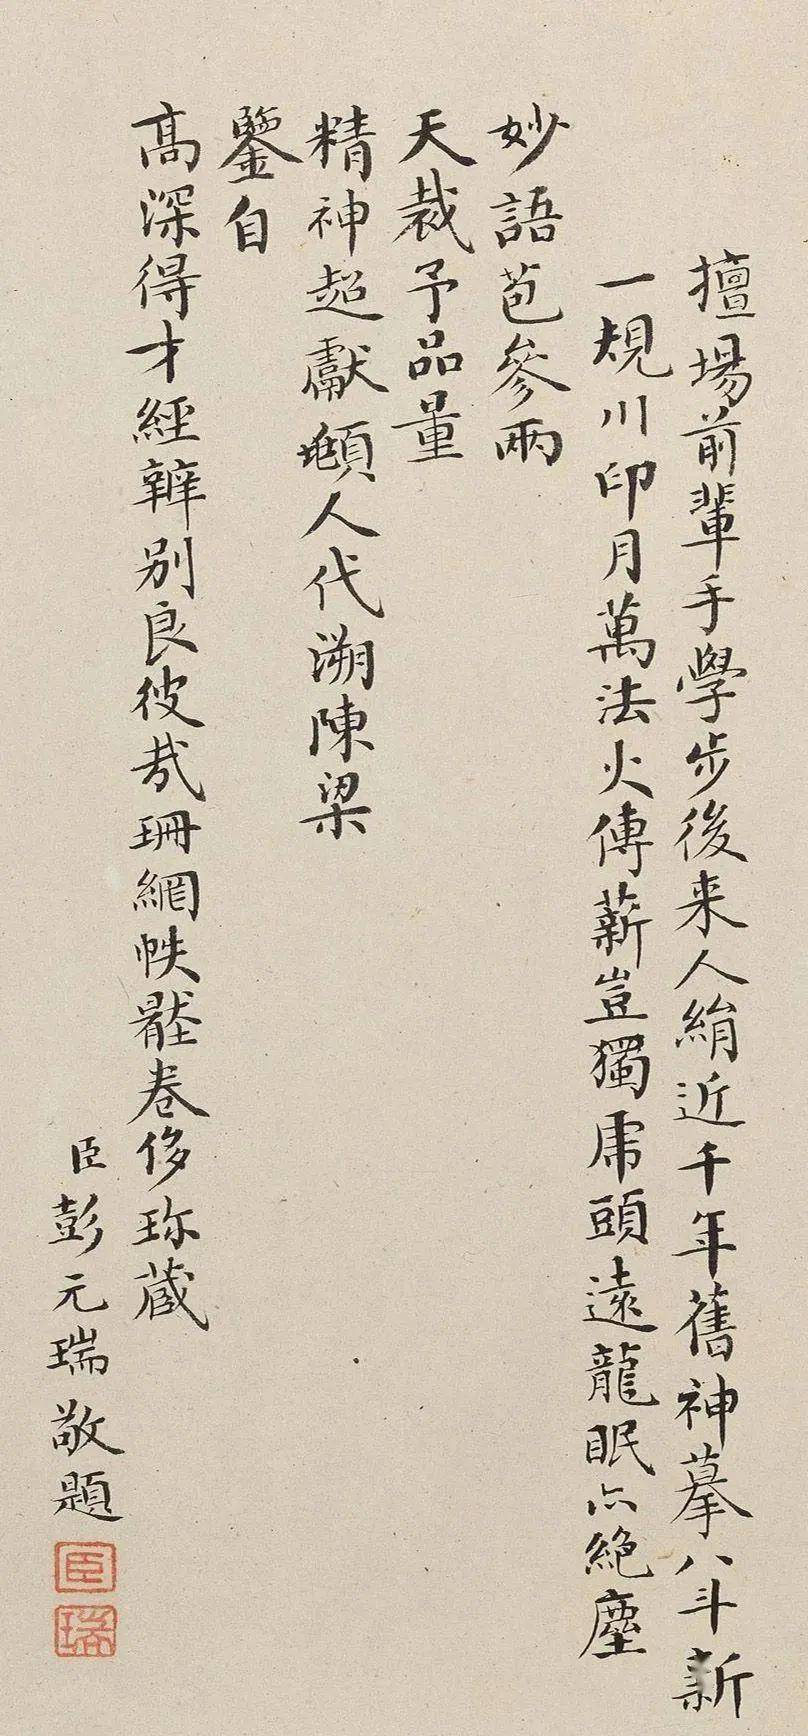 擅場前輩手學步後来人絹近千年舊神摹八斗新
一規川印月萬法火傳薪豈獨虎頭遠龍眠亦絶塵
妙語苞參兩
天裁予品量
精神超獻頫人代溯陳梁
鑒自
高深得才經辨别良彼㢤珊網帙
卷侈珎蔵
臣彭元瑞敬題
臣
瑞